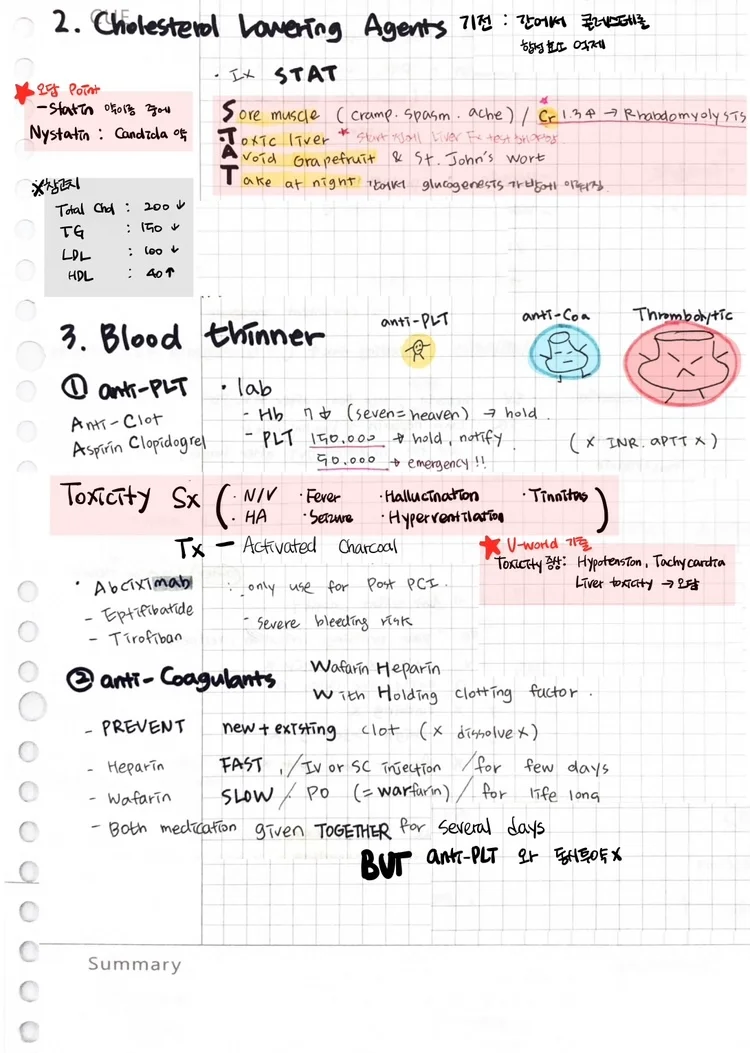 CUE
2. Cholesterol Lowering Agents 기전 : 간에서 콜레스테롤
합성 효소 억제
· Ix STAT
★오답 Point
-Statin 약이름 중에
Nystatin : Candida 약
Sore muscle (cramp. spasm. ache) / Cr 1.3↑ → Rhabdomyolysis
Toxic liver * Start 전에 Liver Fx test
Avoid Grapefruit & St. John's wort
Take at night 간에서 glucogenesis 가 밤에 이뤄짐
※참고치
Total Chol : 200↓
TG : 150↓
LDL : 100↓
HDL : 40↑
3. Blood thinner
anti-PLT
anti-Coa
Thrombolytic
① anti-PLT
Anti-Clot
Aspirin Clopidogrel
· lab
- Hb 7↓ (seven=heaven) → hold.
- PLT 150.000 → hold, notify. (x INR. aPTT x)
50.000 → emergency!!
Toxicity Sx ( · N/V · Fever · Hallucination · Tinnitus )
· HA · Seizure · Hyperventilation
Tx - Activated Charcoal
★ U-world 기출
Toxicity 증상: Hypotension, Tachycardia
Liver toxicity → 오답
· Abciximab : only use for Post PCI.
- Eptifibatide
- Severe bleeding risk
- Tirofiban
② anti-Coagulants
Wafarin Heparin
With Holding clotting factor.
- PREVENT new + existing clot (x dissolve x)
- Heparin FAST, / IV or SC injection / for few days
- Wafarin SLOW / PO (= warfarin) / for life long
- Both medication given TOGETHER for several days
BUT anti-PLT 와 동시투약 x
Summary